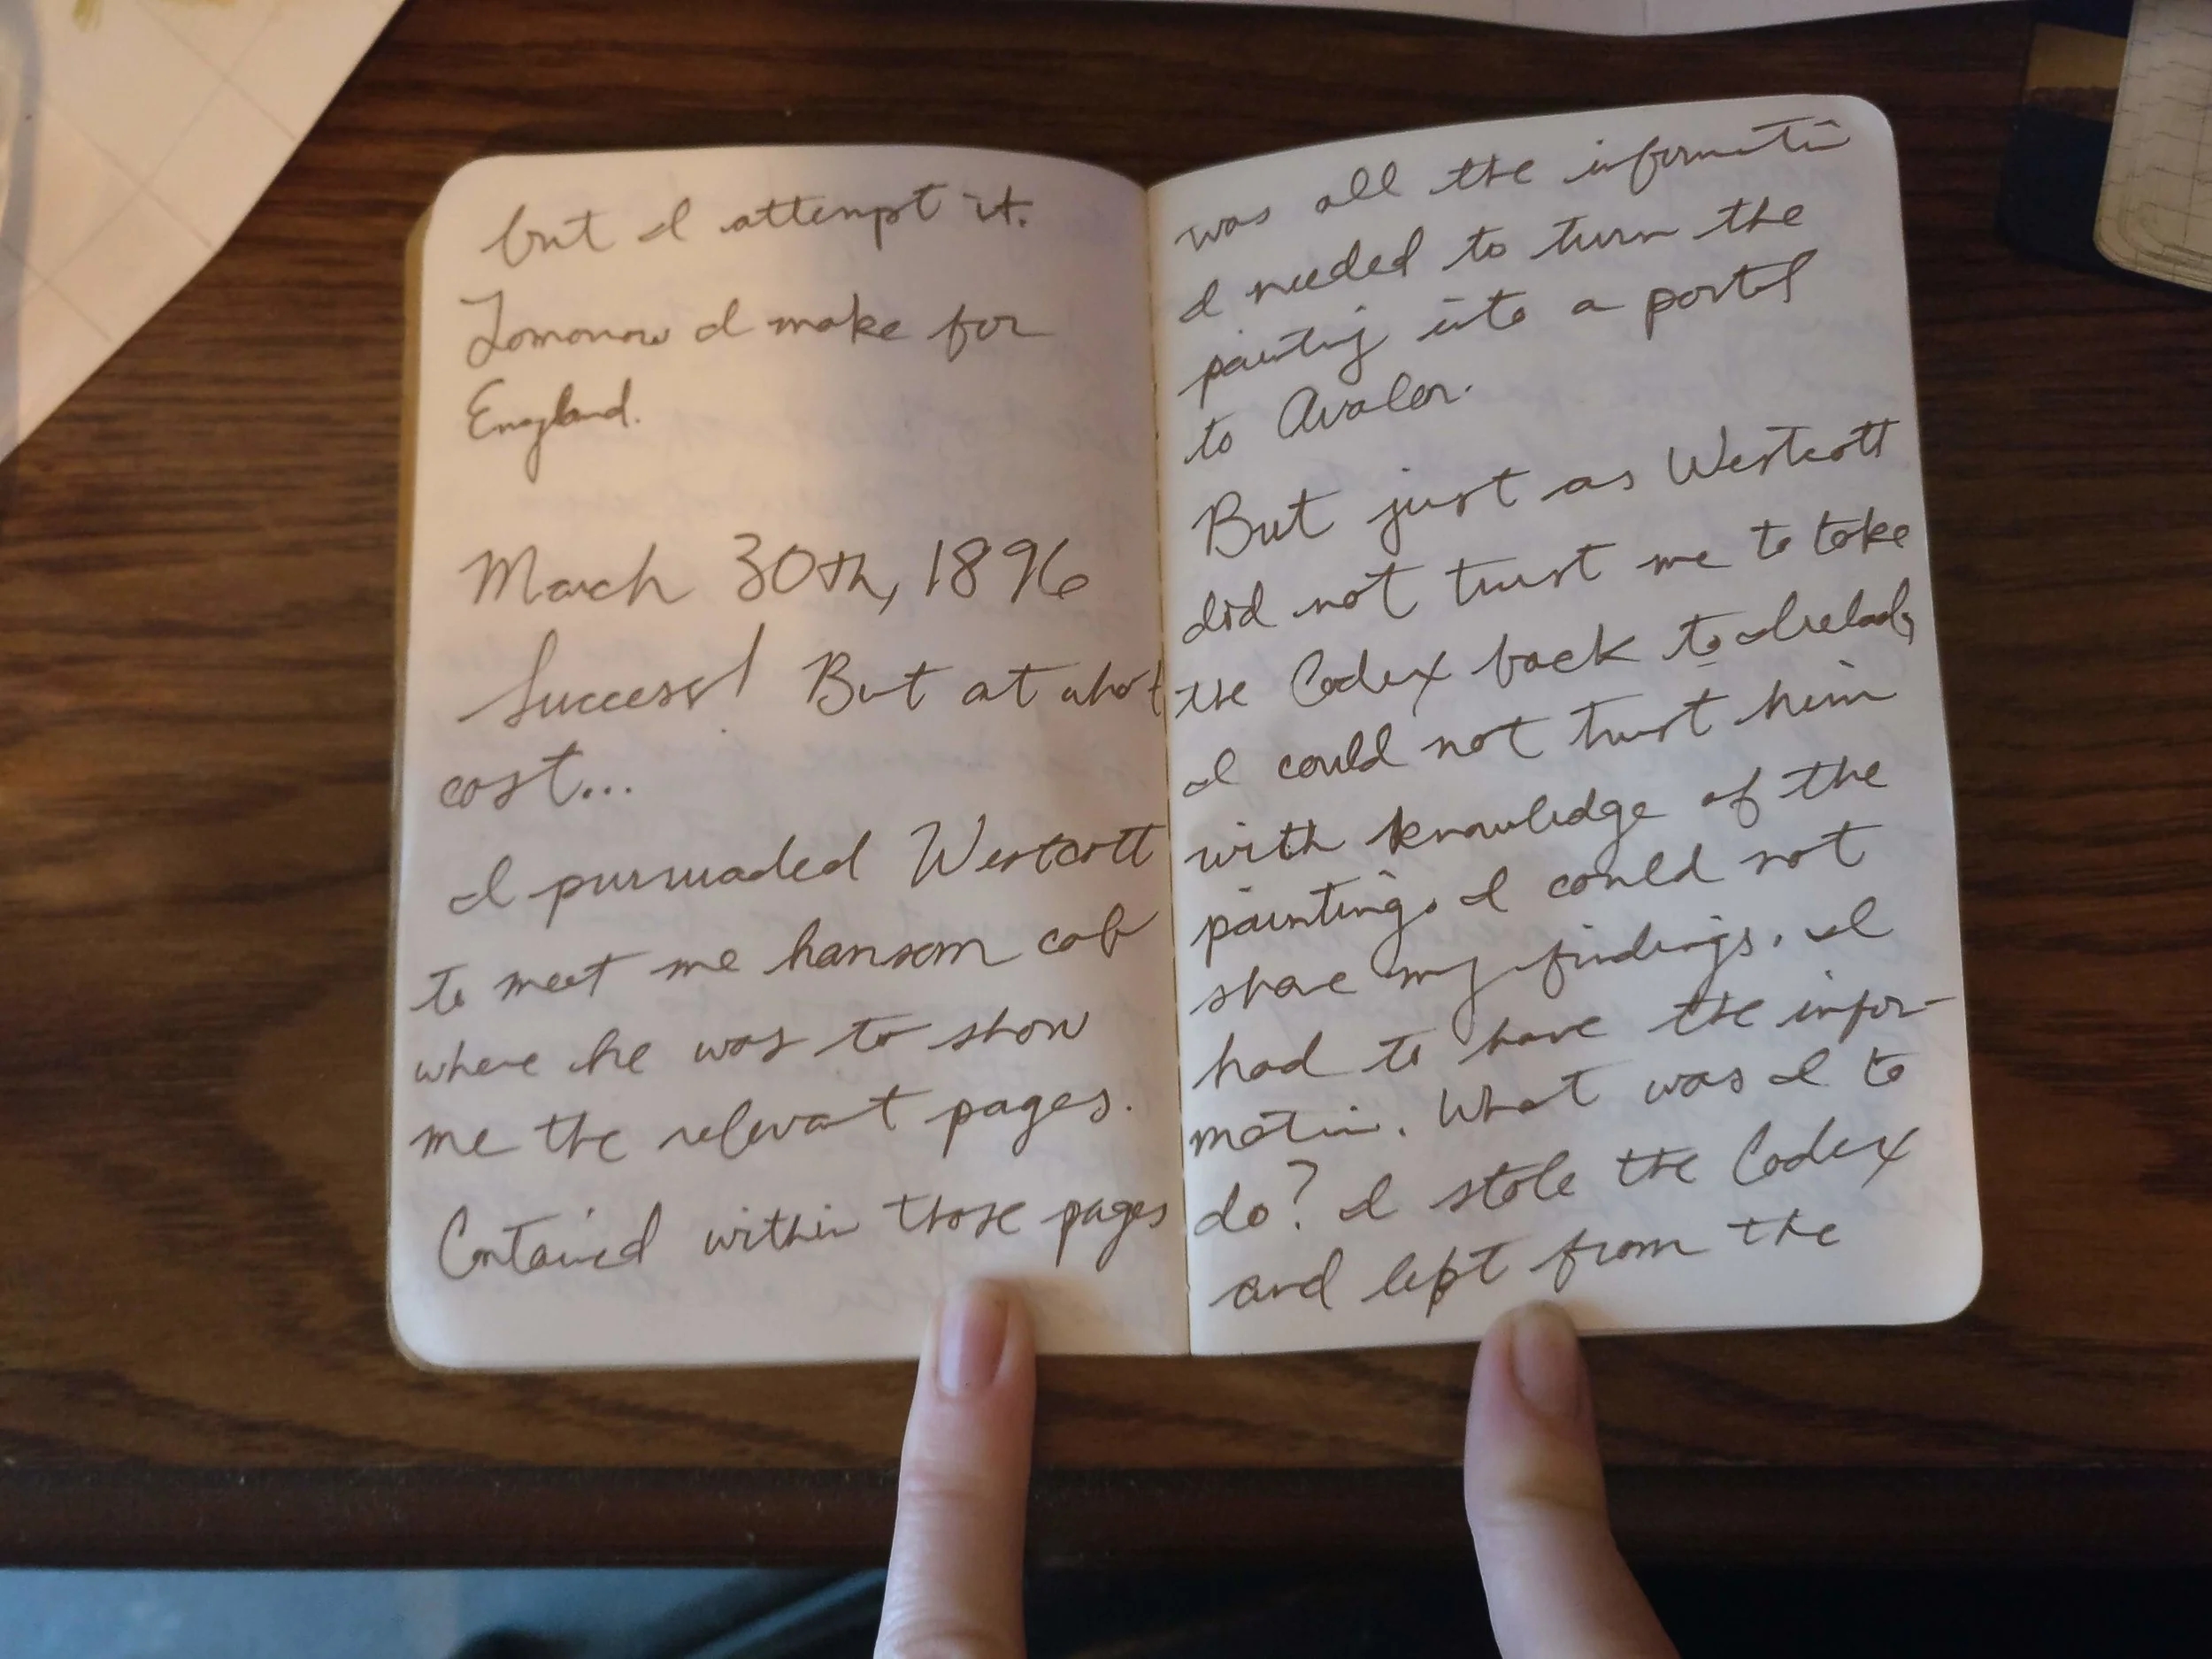 but I attempt it.
Tomorrow I make for
England.
March 30th, 1896
Success! But at what
cost...
I pursuaded Westcott
to meet me hansom cab
where he was to show
me the relevant pages.
Contained within those pages
was all the informatin
I needed to turn the
painting into a portal
to Avalon.
But just as Westcott
did not trust me to take
the Codex back to Ireland,
I could not trust him
with knowledge of the
painting. I could not
share my findings. I
had to have the infor-
mation. What was I to
do? I stole the Codex
and lept from the